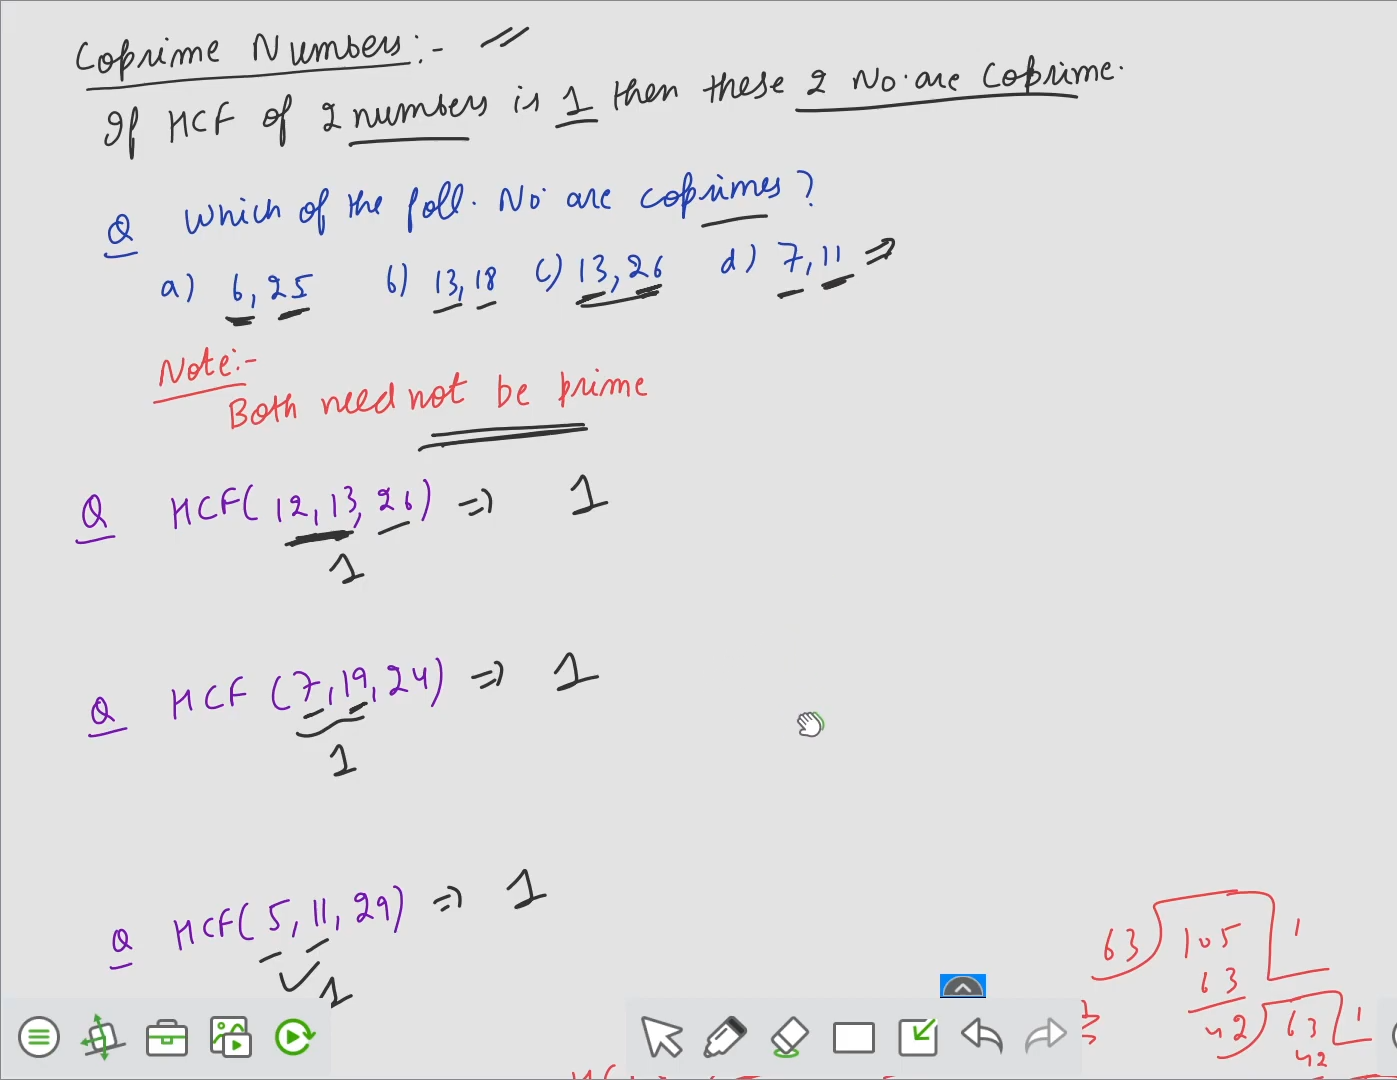 Coprime Numbers:-
If HCF of 2 numbers is 1 then these 2 No. are Coprime.
Q Which of the foll. No. are coprimes?
a) 6, 25 b) 13, 18 c) 13, 26 d) 7, 11 ⇒
Note:-
Both need not be prime
Q HCF(12, 13, 26) ⇒ 1
1
Q HCF (7, 19, 24) ⇒ 1
1
Q HCF(5, 11, 29) ⇒ 1
1
63 ) 105 1
63
42 ) 63 1
42